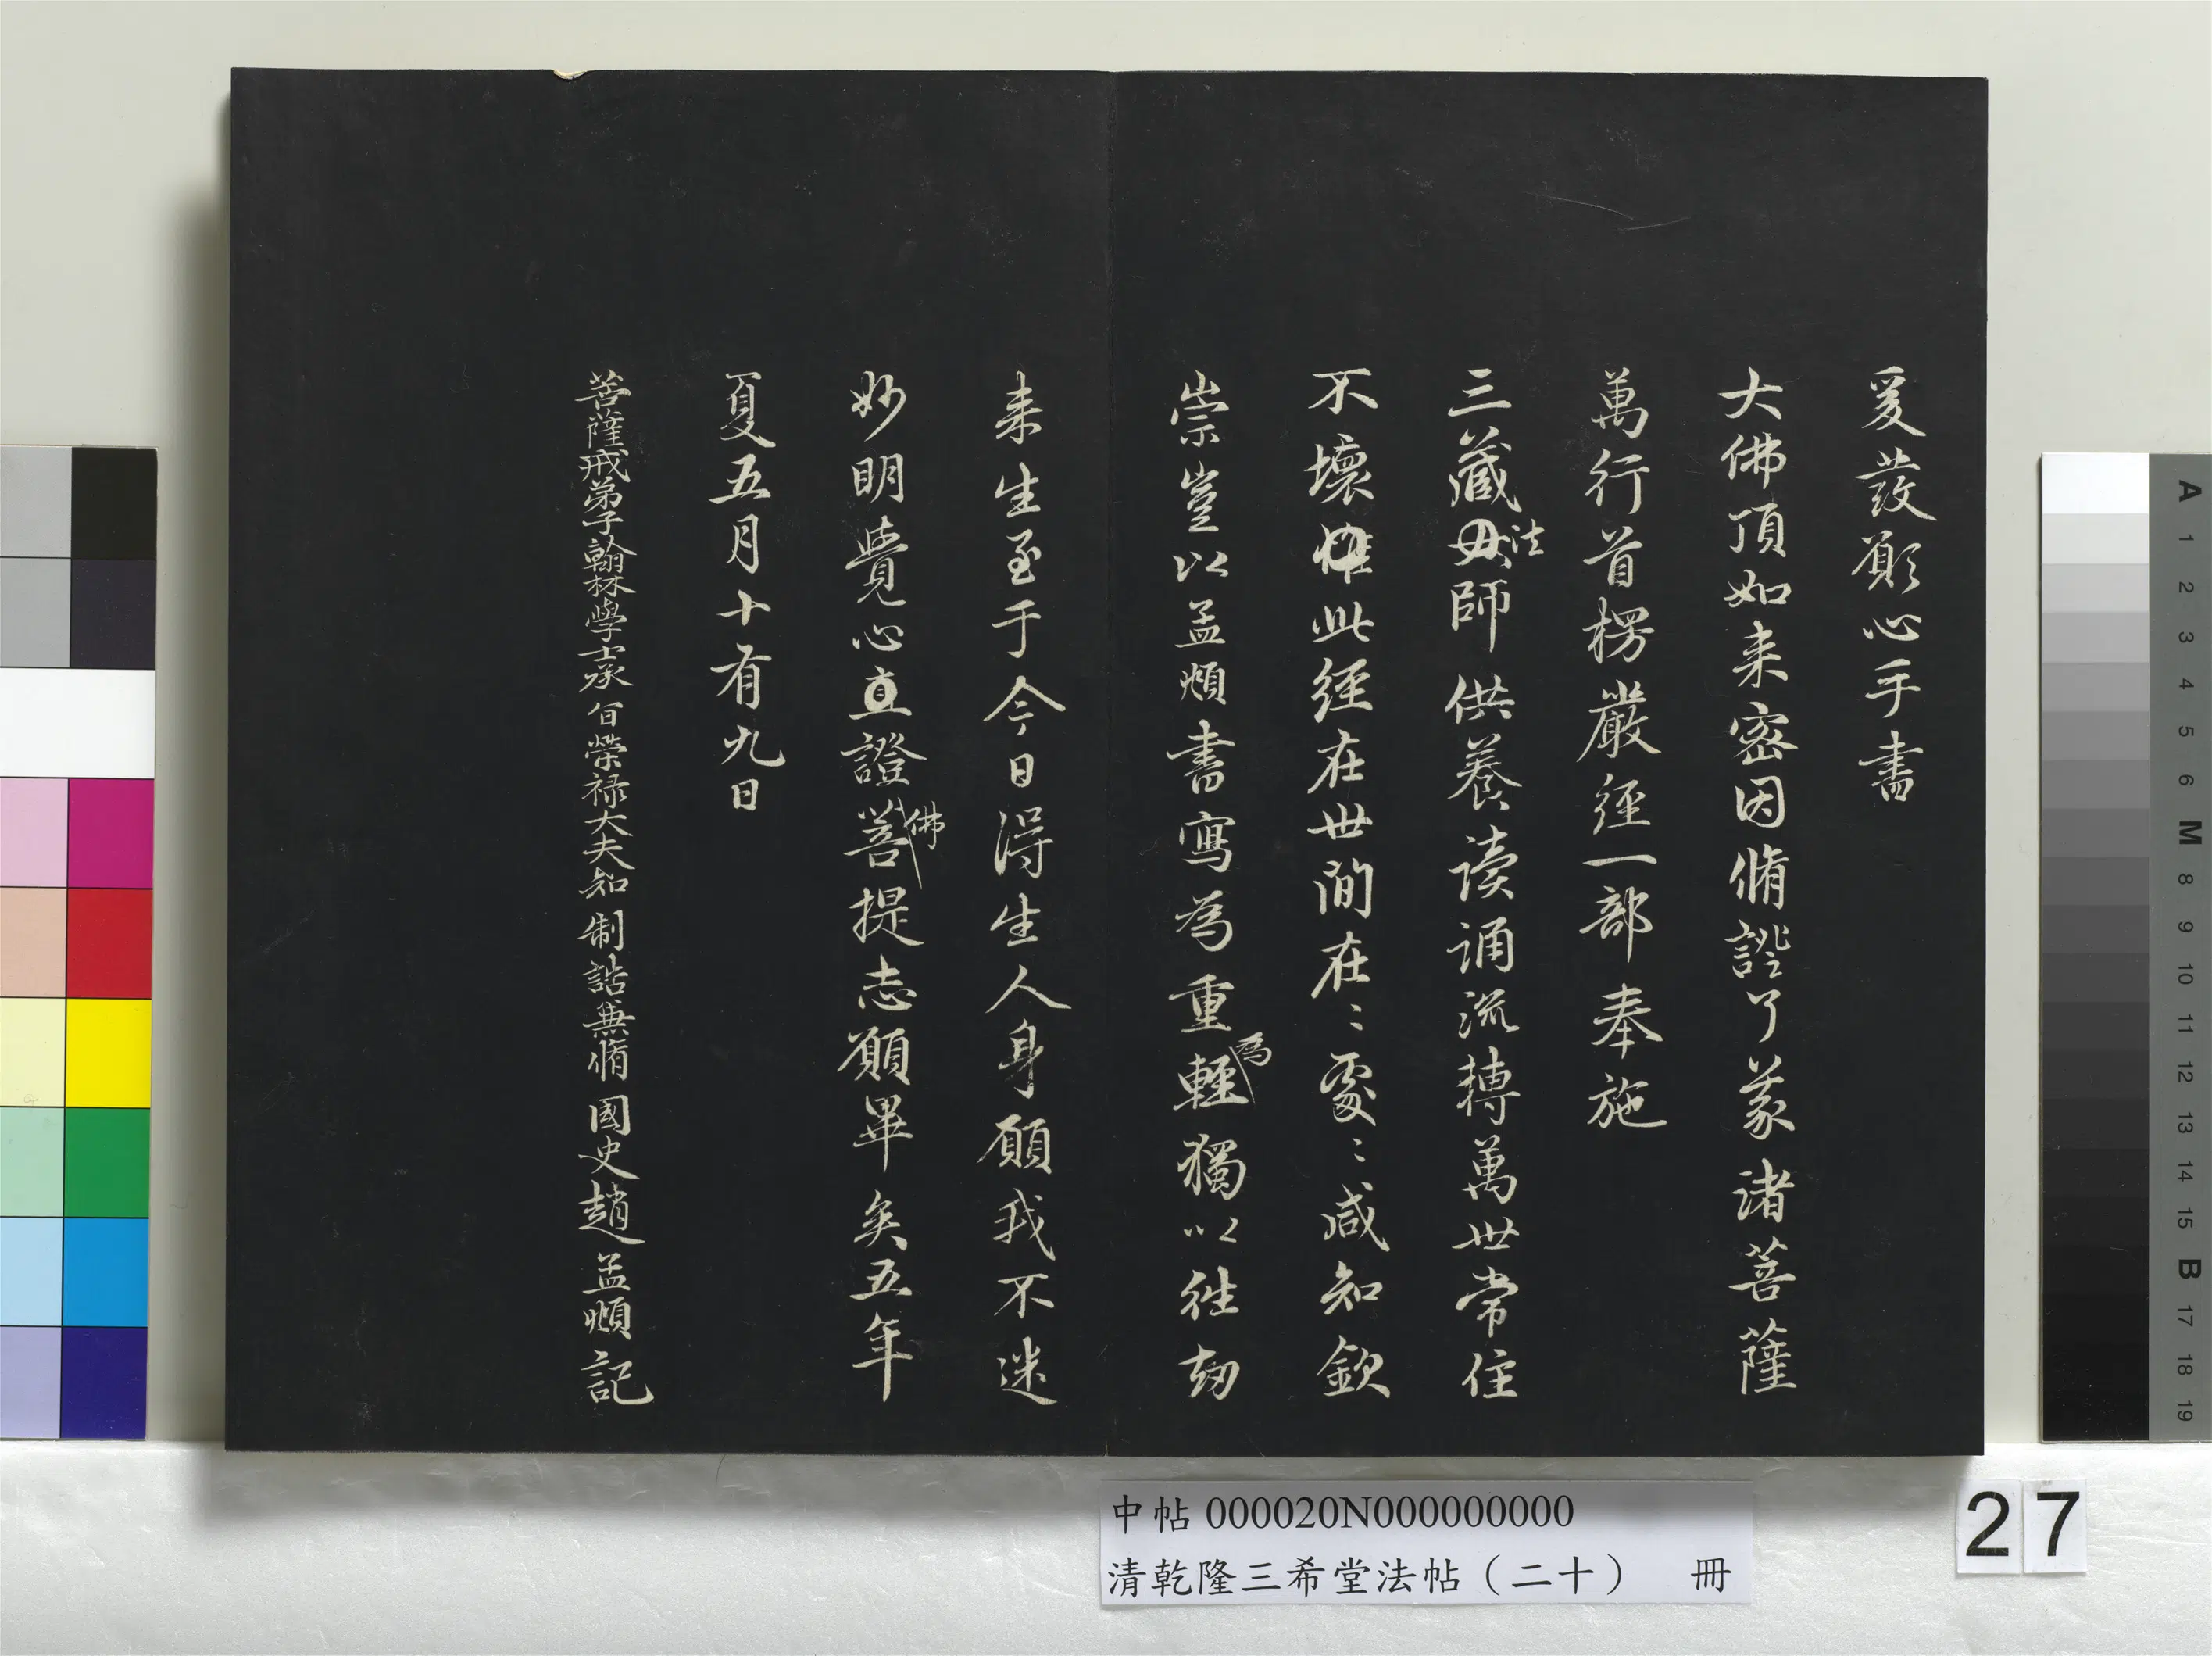 爰發願心手書
大佛頂如来密因脩證了義諸菩薩
萬行首楞嚴經一部奉施
三藏法師供養读诵流轉萬世常住
不壞惟此經在世間在〻處〻咸知欽
崇豈以孟頫書寫為重為輕獨以往劫
来生至于今日得生人身願我不迷
妙明覺心直證佛菩提志願畢矣五年
夏五月十有九日
菩薩戒弟子翰林學士承㫖榮禄大夫知制誥兼脩國史趙孟頫記
中帖 000020N000000000
清乾隆三希堂法帖（二十） 冊
27
A 1 2 3 4 5 6 M 8 9 10 11 12 13 14 15 B 17 18 19